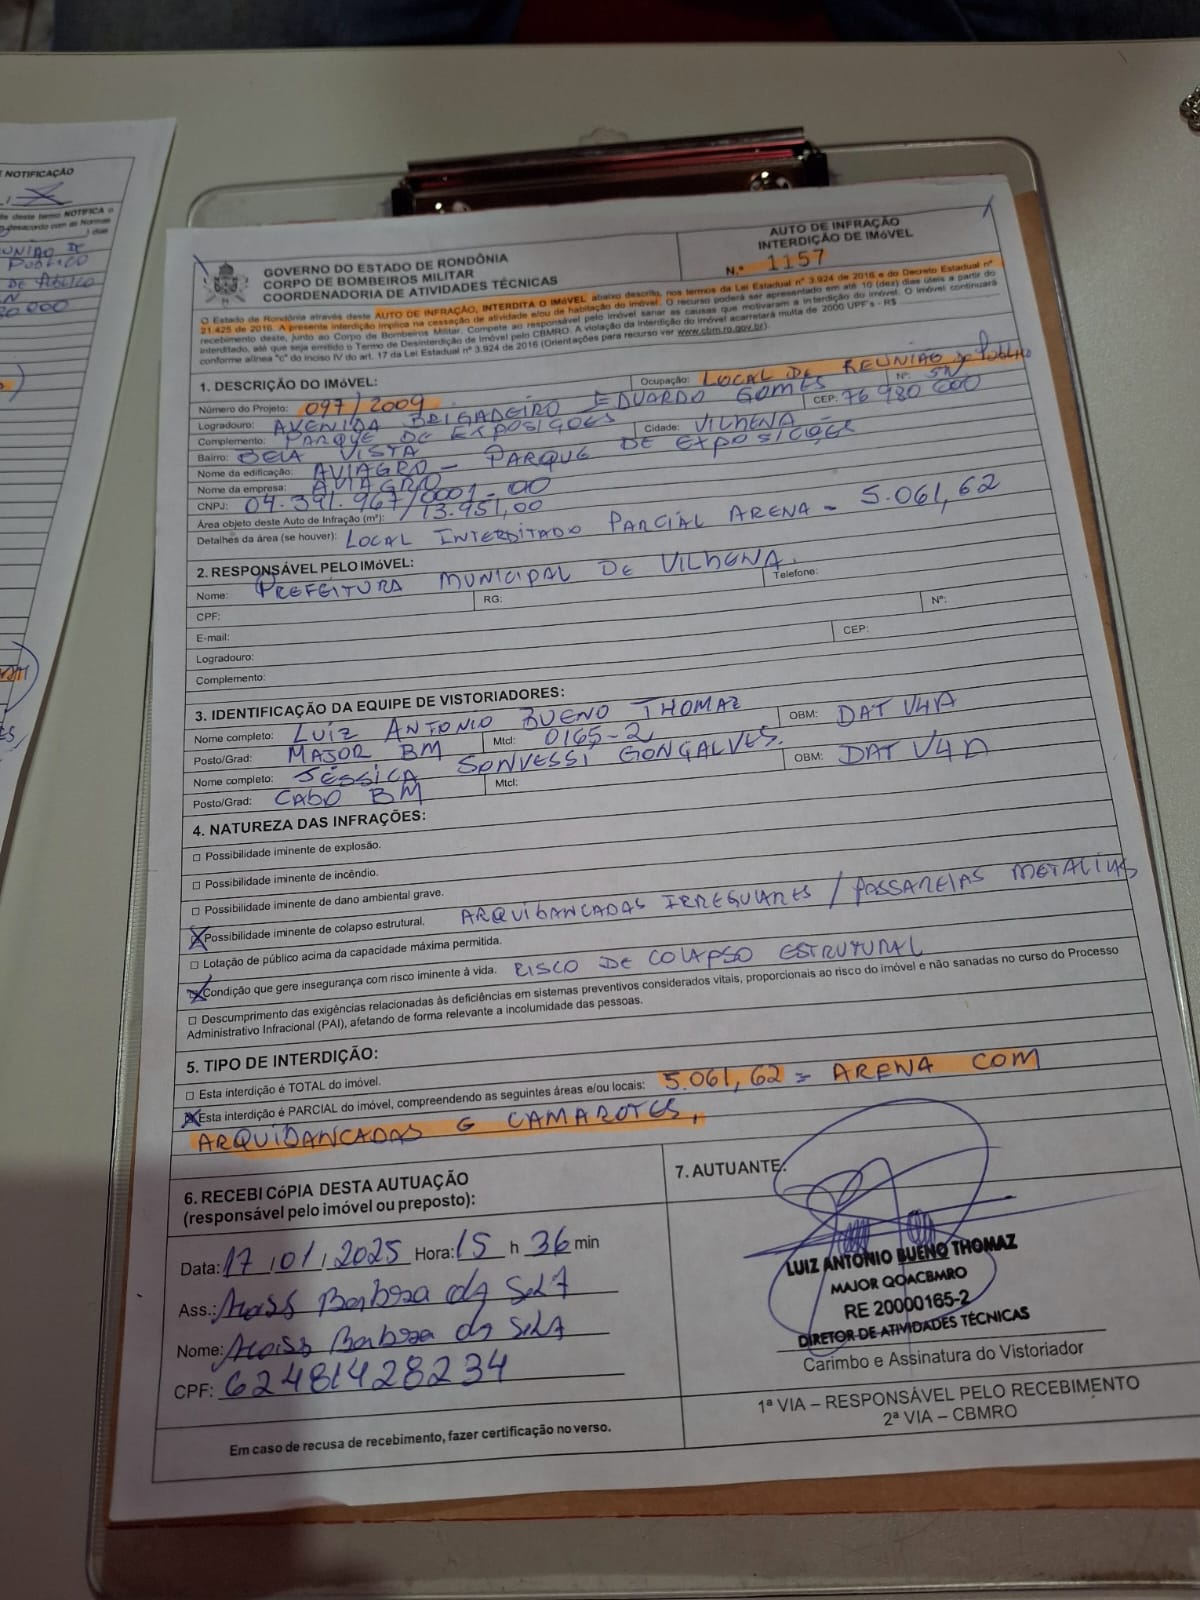 E NOTIFICAÇÃO
te deste termo NOTIFICA o
desacordo com as Normas
dias
REUNIÃO DE
PÚBLICO
DE PÚBLICO
GOVERNO DO ESTADO DE RONDÔNIA
CORPO DE BOMBEIROS MILITAR
COORDENADORIA DE ATIVIDADES TÉCNICAS
AUTO DE INFRAÇÃO
INTERDIÇÃO DE IMóVEL
N.º 1157
O Estado de Rondônia através deste AUTO DE INFRAÇÃO, INTERDITA O IMóVEL abaixo descrito, nos termos da Lei Estadual n° 3.924 de 2016 e do Decreto Estadual n°
21.425 de 2016. A presente interdição implica na cessação de atividade e/ou de habitação do imóvel. O recurso poderá ser apresentado em até 10 (dez) dias úteis a partir do
recebimento deste, junto ao Corpo de Bombeiros Militar. Compete ao responsável pelo imóvel sanar as causas que motivaram a interdição do imóvel. O imóvel continuará
interditado, até que seja emitido o Termo de Desinterdição de Imóvel pelo CBMRO. A violação da interdição do imóvel acarretará multa de 2000 UPF's - R$
conforme alínea "c" do inciso IV do art. 17 da Lei Estadual n° 3.924 de 2016 (Orientações para recurso ver www.cbm.ro.gov.br).
1. DESCRIÇÃO DO IMóVEL:
Número do Projeto: 097/2009 Ocupação: LOCAL DE REUNIÃO DE PÚBLICO
Logradouro: AVENIDA BRIGADEIRO EDUARDO GOMES N°: SN
Complemento: PARQUE DE EXPOSIÇÕES CEP: 76 980 000
Bairro: BELA VISTA Cidade: VILHENA
Nome da edificação: AVIAGRO - PARQUE DE EXPOSIÇÕES
Nome da empresa: AVIAGRO
CNPJ: 04.391.967/0001-00
Área objeto deste Auto de Infração (m²): 13.951,00
Detalhes da área (se houver): LOCAL INTERDITADO PARCIAL ARENA - 5.061,62
2. RESPONSÁVEL PELO IMóVEL:
Nome: PREFEITURA MUNICIPAL DE VILHENA.
CPF: RG: Telefone:
E-mail:
Logradouro: Nº:
Complemento: CEP:
3. IDENTIFICAÇÃO DA EQUIPE DE VISTORIADORES:
Nome completo: LUIZ ANTONIO BUENO THOMAZ
Posto/Grad: MAJOR BM Mtcl: 0165-2 OBM: DAT V4A
Nome completo: JÉSSICA SONVESSI GONÇALVES.
Posto/Grad: CABO BM Mtcl: OBM: DAT V4A
4. NATUREZA DAS INFRAÇÕES:
☐ Possibilidade iminente de explosão.
☐ Possibilidade iminente de incêndio.
☐ Possibilidade iminente de dano ambiental grave.
☒ Possibilidade iminente de colapso estrutural. ARQUIBANCADAS IRREGULARES / PASSARELAS METALICAS
☐ Lotação de público acima da capacidade máxima permitida.
☒ Condição que gere insegurança com risco iminente à vida. RISCO DE COLAPSO ESTRUTURAL
☐ Descumprimento das exigências relacionadas às deficiências em sistemas preventivos considerados vitais, proporcionais ao risco do imóvel e não sanadas no curso do Processo
Administrativo Infracional (PAI), afetando de forma relevante a incolumidade das pessoas.
5. TIPO DE INTERDIÇÃO:
☐ Esta interdição é TOTAL do imóvel.
☒ Esta interdição é PARCIAL do imóvel, compreendendo as seguintes áreas e/ou locais: 5.061,62 = ARENA COM
ARQUIBANCADAS E CAMAROTES.
6. RECEBI CóPIA DESTA AUTUAÇÃO
(responsável pelo imóvel ou preposto):
Data: 17,01,2025 Hora: 15 h 36 min
Ass.: Barbosa da Silva
Nome: Barbosa da Silva
CPF: 62481428234
Em caso de recusa de recebimento, fazer certificação no verso.
7. AUTUANTE:
LUIZ ANTONIO BUENO THOMAZ
MAJOR QOACBMRO
RE 20000165-2
DIRETOR DE ATIVIDADES TÉCNICAS
Carimbo e Assinatura do Vistoriador
1ª VIA – RESPONSÁVEL PELO RECEBIMENTO
2ª VIA – CBMRO